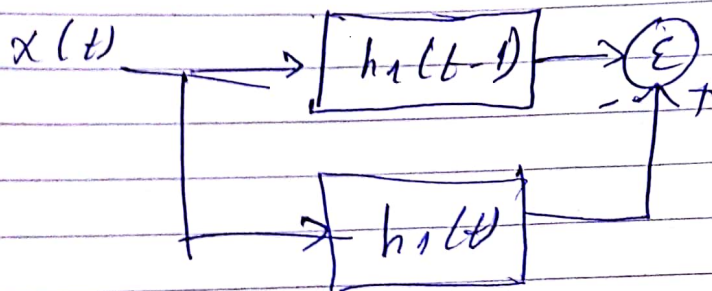 x(t)
h1(t-1)
Σ
- +
h1(t)